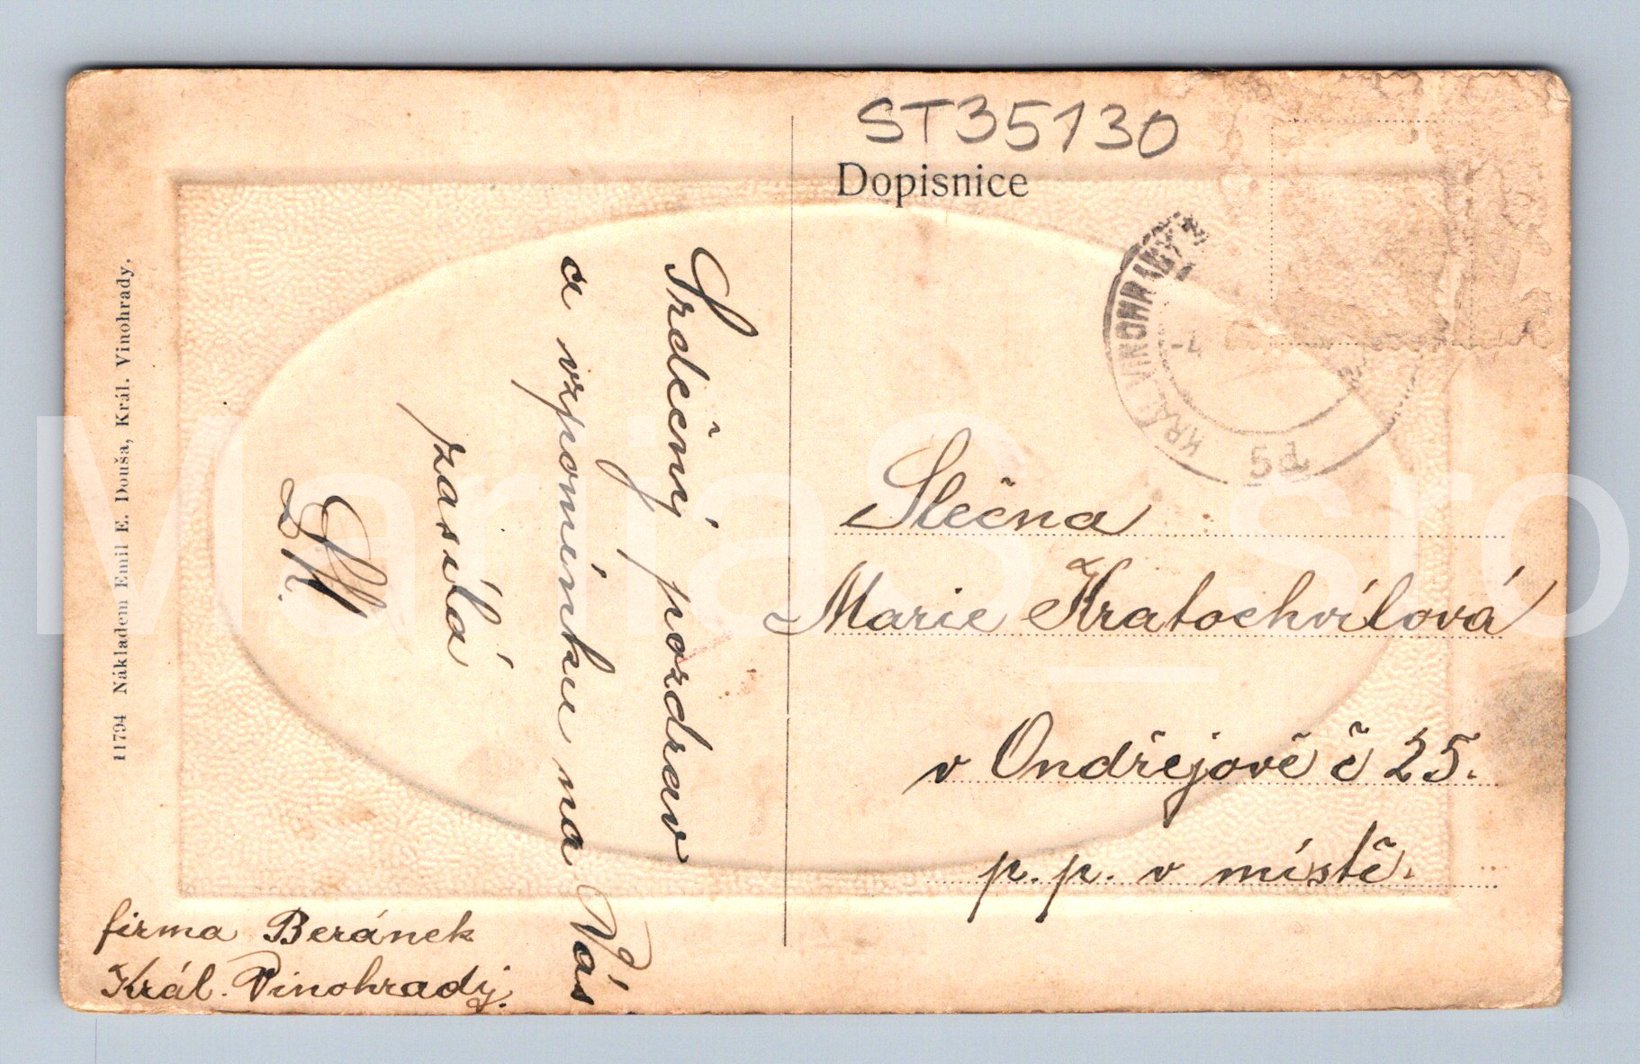 ST35130
Dopisnice
KRÁL. VINOHRADY
-4
Slečna
Marie Kratochvílová
v Ondřejově č 25.
p.p. v místě.
Srdečný pozdrav
a vzpomínku na Vás
zasílá
firma Beránek
Král. Vinohrady.
11794 Nákladem Emil E. Douša, Král. Vinohrady.
MariaS_sro